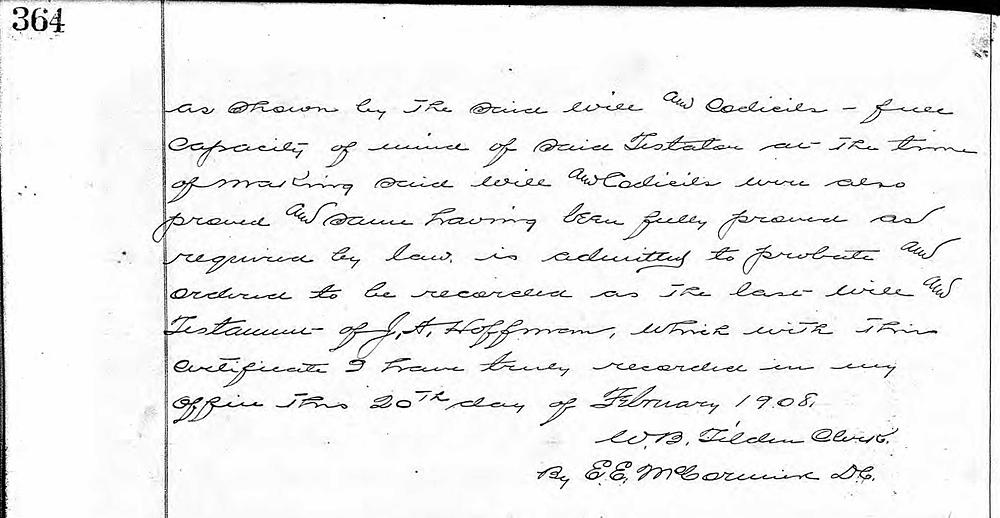 364
as shown by the said will and Codicils - full
Capacity of mind of said Testator at the time
of making said will and Codicils were also
proved and same having been fully proved as
required by law. is admitted to probate and
ordered to be recorded as the last will and
Testament of J. H. Hoffman, which with this
certificate I have truly recorded in my
office this 20th day of February 1908.
W. B. Tilden Clerk.
By E. E. McCormick D.C.